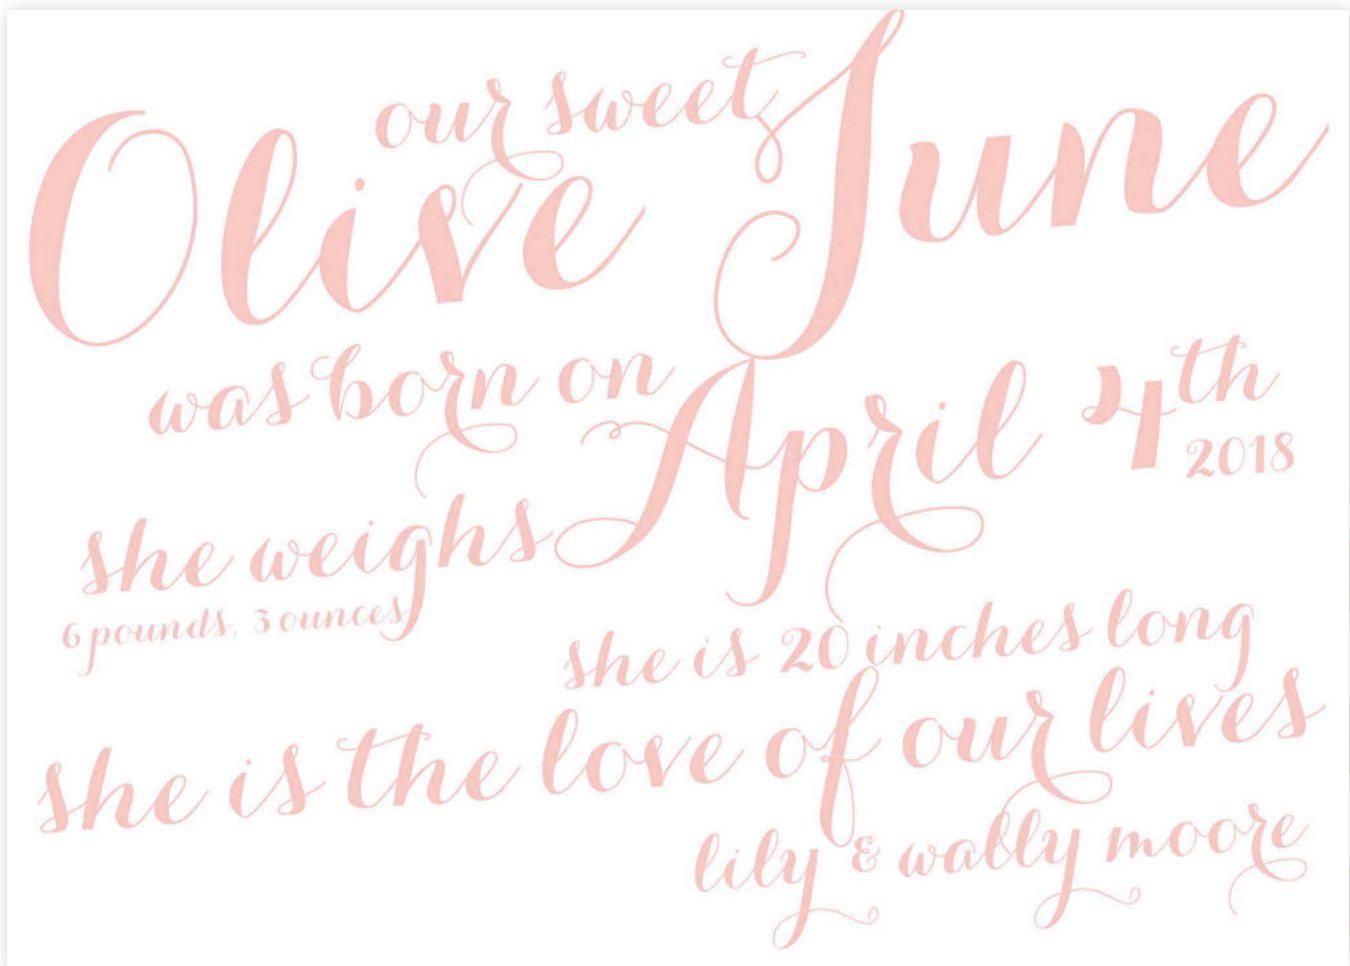 our sweet
Olive June
was born on April 4th
2018
she weighs
6 pounds, 3 ounces
she is 20 inches long
she is the love of our lives
lily & wally moore